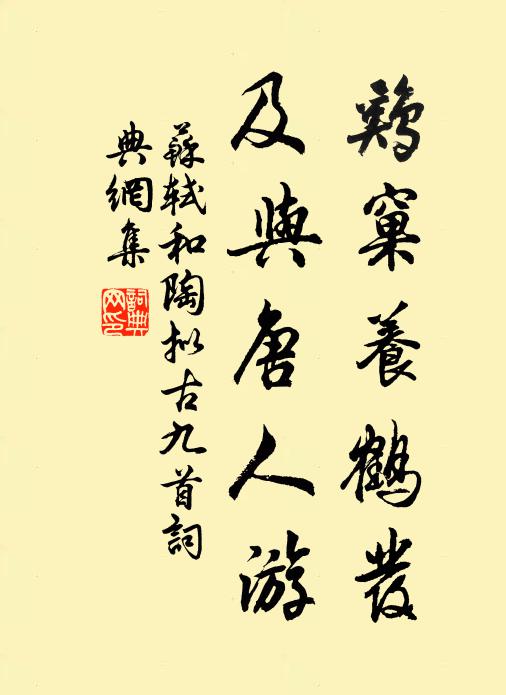 鷄窠養鶴發
及與唐人游
蘇軾和陶拟古九首詞
典網集
詞典
网印